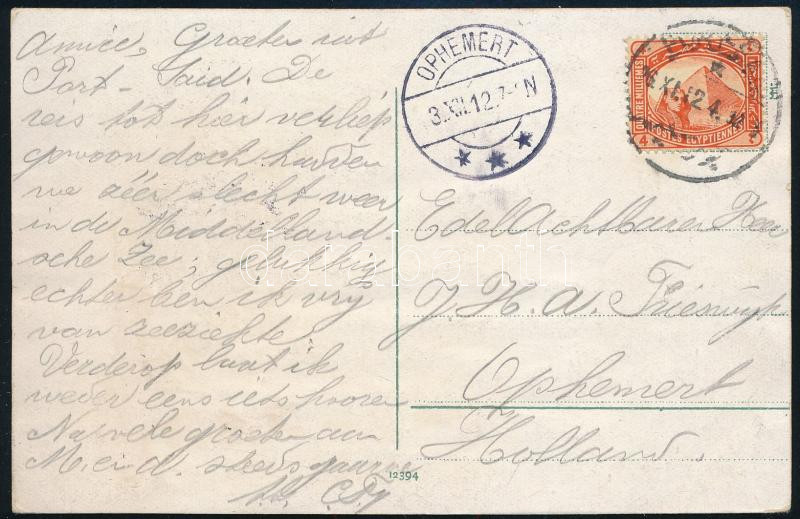 Amice, Groeten uit
Port-Said. De
reis tot hier verliep
gewoon doch hadden
we zéér slecht weer
in de Middelland-
sche Zee, gelukkig
echter ben ik vrij
van zeeziekte.
Verderop laat ik
weder eens iets hooren
Na vele groeten aan
M. en d. steeds gaarne
OPHEMERT
3.XII.12. 7- N
QUATRE MILLIEMES
POSTES EGYPTIENNES
4
Edel Achtbaren Heer
J. H. A.
Ophemert
Holland.
12394